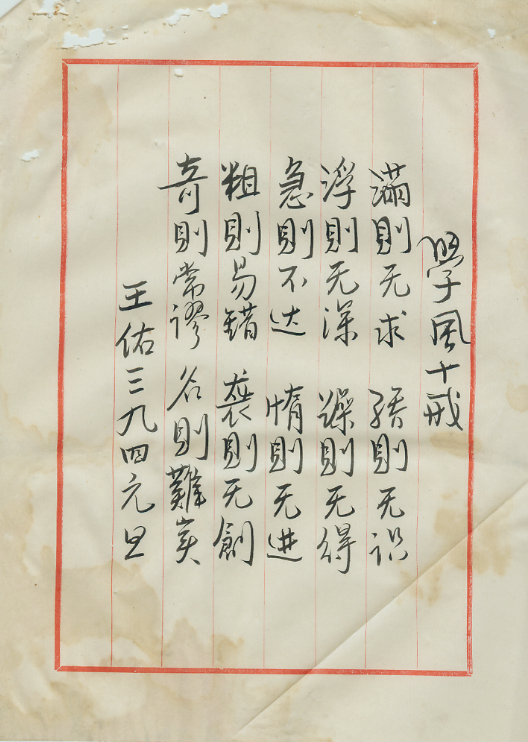 學風十戒
滿則无求 則无识
浮則无深 躁則无得
急則不达 惰則无进
粗則易错 袭則无創
奇則常谬 名則難实
王佑三九四元旦